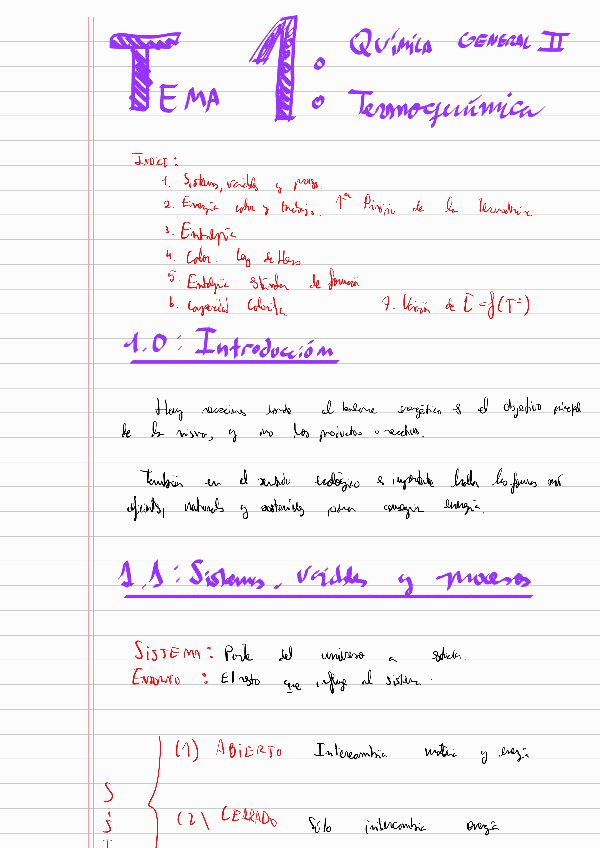 TEMA 1: QUÍMICA GENERAL II
Termoquímica
ÍNDICE:
1. Sistemas, variables y
2. Energía calor y trabajo. 1ª de la
3. Entalpía
4. Calor. Ley de Hess
5. Entalpía de formación
6. Calorífica 7. de = f(Tª)
1.0: Introducción
Hay reacciones donde el balance energético es el objetivo principal
de la misma, y no los productos o reactivos.
También en el sentido ecológico es importante hallar las formas más
naturales y sostenibles para conseguir energía.
1.1: Sistemas, variables y procesos
SISTEMA: Parte del universo a estudiar.
ENTORNO: El resto que influye al sistema.
(1) ABIERTO Intercambia materia y energía
S
i
(2) CERRADO Sólo intercambia energía
S
T